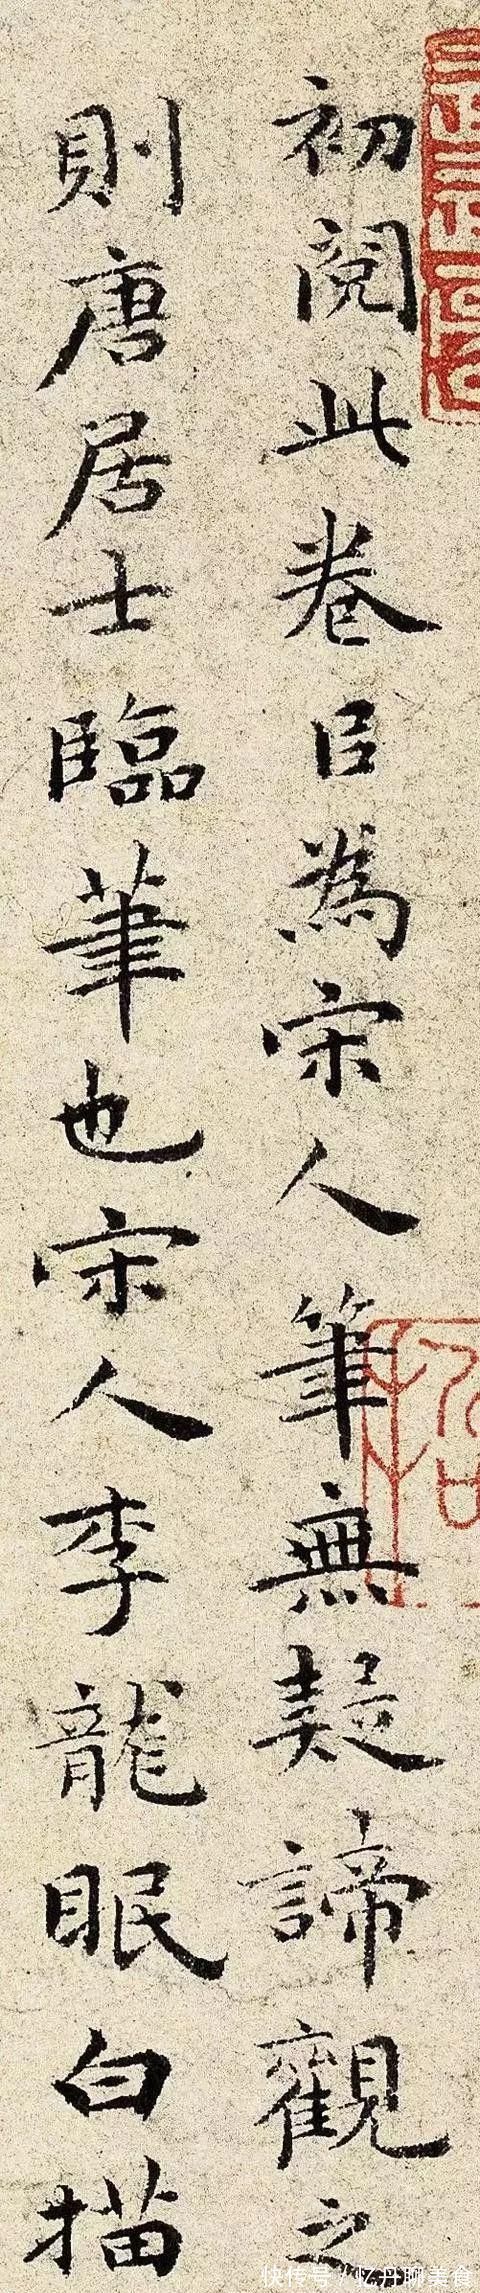 初閱此卷目為宋人筆無疑諦觀之
則唐居士臨筆也宋人李龍眠白描
快传号/忆丹聊美食